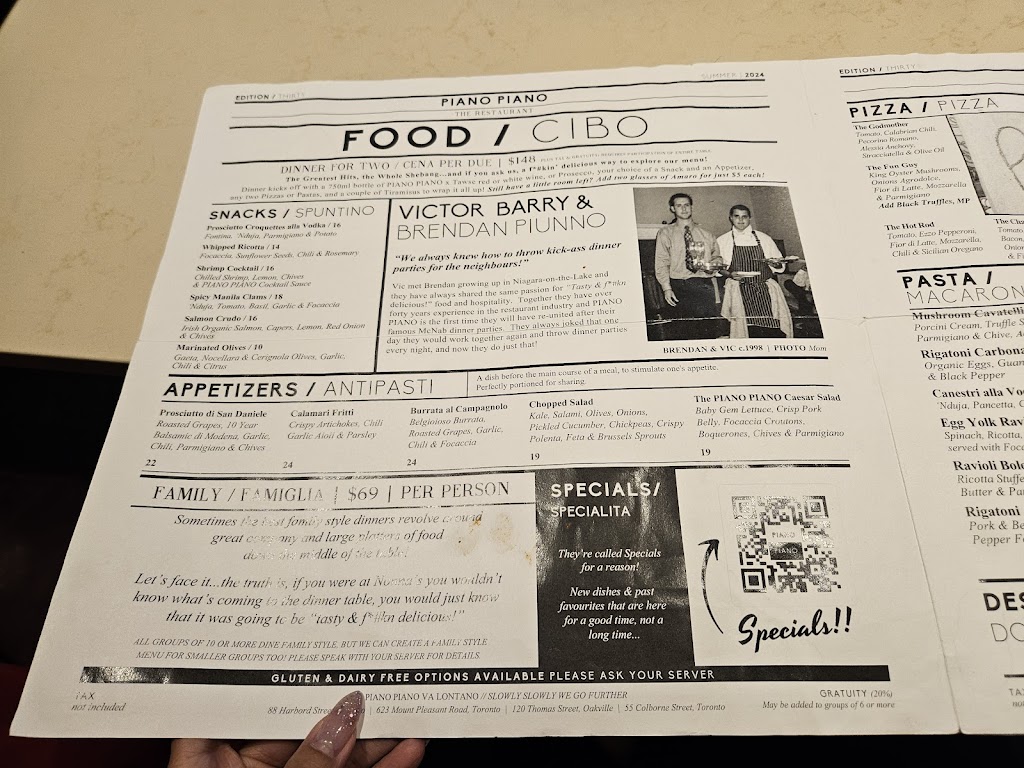 EDITION / THIRTY
SUMMER | 2024
PIANO PIANO
THE RESTAURANT
FOOD / CIBO
DINNER FOR TWO / CENA PER DUE | $148
The Greatest Hits, the Whole Shebang...and if you ask us, a f*#kin' delicious way to explore our menu!
Dinner kicks off with a 750ml bottle of PIANO PIANO x Tawse red or white wine, or Prosecco, your choice of a Snack and an Appetizer,
any two Pizzas or Pastas, and a couple of Tiramisus to wrap it all up! Still have a little room left? Add two glasses of Amaro for just $5 each!
SNACKS / SPUNTINO
Prosciutto Croquettes alla Vodka / 16
Fontina, 'Nduja, Parmigiano & Potato
Whipped Ricotta / 14
Focaccia, Sunflower Seeds, Chili & Rosemary
Shrimp Cocktail / 16
Chilled Shrimp, Lemon, Chives
& PIANO PIANO Cocktail Sauce
Spicy Manila Clams / 18
'Nduja, Tomato, Basil, Garlic & Focaccia
Salmon Crudo / 16
Irish Organic Salmon, Capers, Lemon, Red Onion
& Chives
Marinated Olives / 10
Gaeta, Nocellara & Cerignola Olives, Garlic,
Chili & Citrus
VICTOR BARRY &
BRENDAN PIUNNO
"We always knew how to throw kick-ass dinner
parties for the neighbours!"
Vic met Brendan growing up in Niagara-on-the-Lake and
they have always shared the same passion for "Tasty & f*#kn
delicious!" food and hospitality. Together they have over
forty years experience in the restaurant industry and PIANO
PIANO is the first time they will have re-united after their
famous McNab dinner parties. They always joked that one
day they would work together again and throw dinner parties
every night, and now they do just that!
BRENDAN & VIC c.1998 | PHOTO Mom
APPETIZERS / ANTIPASTI
A dish before the main course of a meal, to stimulate one's appetite.
Perfectly portioned for sharing.
Prosciutto di San Daniele
Roasted Grapes, 10 Year
Balsamic di Modena, Garlic,
Chili, Parmigiano & Chives
22
Calamari Fritti
Crispy Artichokes, Chili
Garlic Aioli & Parsley
24
Burrata al Campagnolo
Belgioioso Burrata,
Roasted Grapes, Garlic,
Chili & Focaccia
24
Chopped Salad
Kale, Salami, Olives, Onions,
Pickled Cucumber, Chickpeas, Crispy
Polenta, Feta & Brussels Sprouts
19
The PIANO PIANO Caesar Salad
Baby Gem Lettuce, Crisp Pork
Belly, Focaccia Croutons,
Boquerones, Chives & Parmigiano
19
FAMILY / FAMIGLIA | $69 | PER PERSON
Sometimes the best family style dinners revolve around
great company and large platters of food
down the middle of the table!
Let's face it...the truth is, if you were at Nonna's you wouldn't
know what's coming to the dinner table, you would just know
that it was going to be "tasty & f*#kn delicious!"
ALL GROUPS OF 10 OR MORE DINE FAMILY STYLE, BUT WE CAN CREATE A FAMILY STYLE
MENU FOR SMALLER GROUPS TOO! PLEASE SPEAK WITH YOUR SERVER FOR DETAILS.
SPECIALS/
SPECIALITA
They're called Specials
for a reason!
New dishes & past
favourites that are here
for a good time, not a
long time...
PIANO
PIANO
Specials!!
GLUTEN & DAIRY FREE OPTIONS AVAILABLE PLEASE ASK YOUR SERVER
TAX
not included
PIANO PIANO VA LONTANO // SLOWLY SLOWLY WE GO FURTHER
88 Harbord Street | 623 Mount Pleasant Road, Toronto | 120 Thomas Street, Oakville | 55 Colborne Street, Toronto
GRATUITY (20%)
May be added to groups of 6 or more
EDITION / THIRTY
PIZZA / PIZZA
The Godmother
Tomato, Calabrian Chili,
Pecorino Romano,
Alessia Anchovy,
Stracciatella & Olive Oil
The Fun Guy
King Oyster Mushrooms,
Onions Agrodolce,
Fior di Latte, Mozzarella
& Parmigiano
Add Black Truffles, MP
The Hot Rod
Tomato, Ezzo Pepperoni,
Fior di Latte, Mozzarella,
Chili & Sicilian Oregano
Tomato
Bacon,
PASTA /
Mushroom Cavatelli
Porcini Cream, Truffle
Parmigiano & Chive,
Rigatoni Carbona
Organic Eggs,
& Black Pepper
Canestri alla
'Nduja, Pancetta,
Egg Yolk Rav
Spinach, Ricotta,
served with Foca
Ravioli Bolo
Ricotta Stuffe
Butter & Pa
Rigatoni
Pork & Be
Pepper F
DES
DO
TA